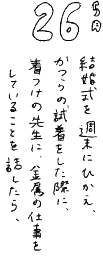 26
男
結婚式を週末にひかえ、
かつらの試着をした際に、
着つけの先生に、金属の仕事を
していることを話したら、